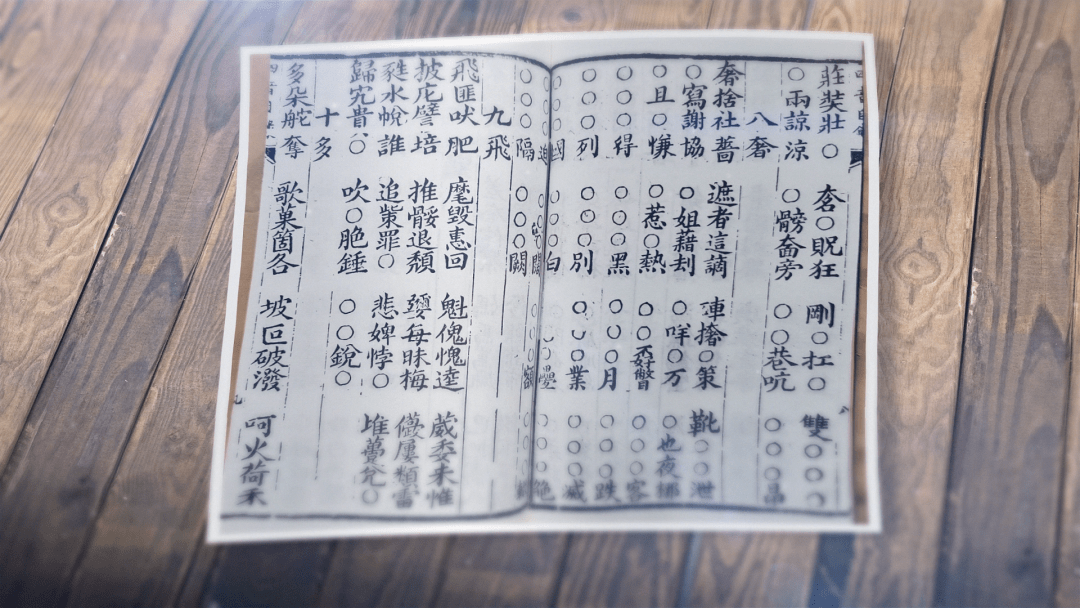 莊奘壯○ ○貺狂 剛○扛○ 雙○○○
○兩諒涼 ○髈旁 ○○巷吭 ○○○
八奢
奢捨社薔 遮者這謫 撦○策 靴○○泄
○寫謝協 ○姐藉刦 ○咩○万 ○也夜
○且○慊 ○惹○熱 ○○孬瞥 ○○○客
○○○得 ○○○黑 ○○○月 ○○○跌
○○○列 ○○○別 ○○○業 ○○○滅
○○○國 ○○○白
○○○隔 ○○○闕
九飛
飛匪吠肥 麾毀恚回 魁傀愧逵 葳委未惟
披庀譬培 推骽退頽 每昧梅 屢類雷
甤水帨誰 追罪○ 悲婢悖○ 堆○
歸宄貴○ 吹○脃錘 ○○銳○
十多
多朵舵奪 歌菓箇各 坡叵破潑 呵火荷禾